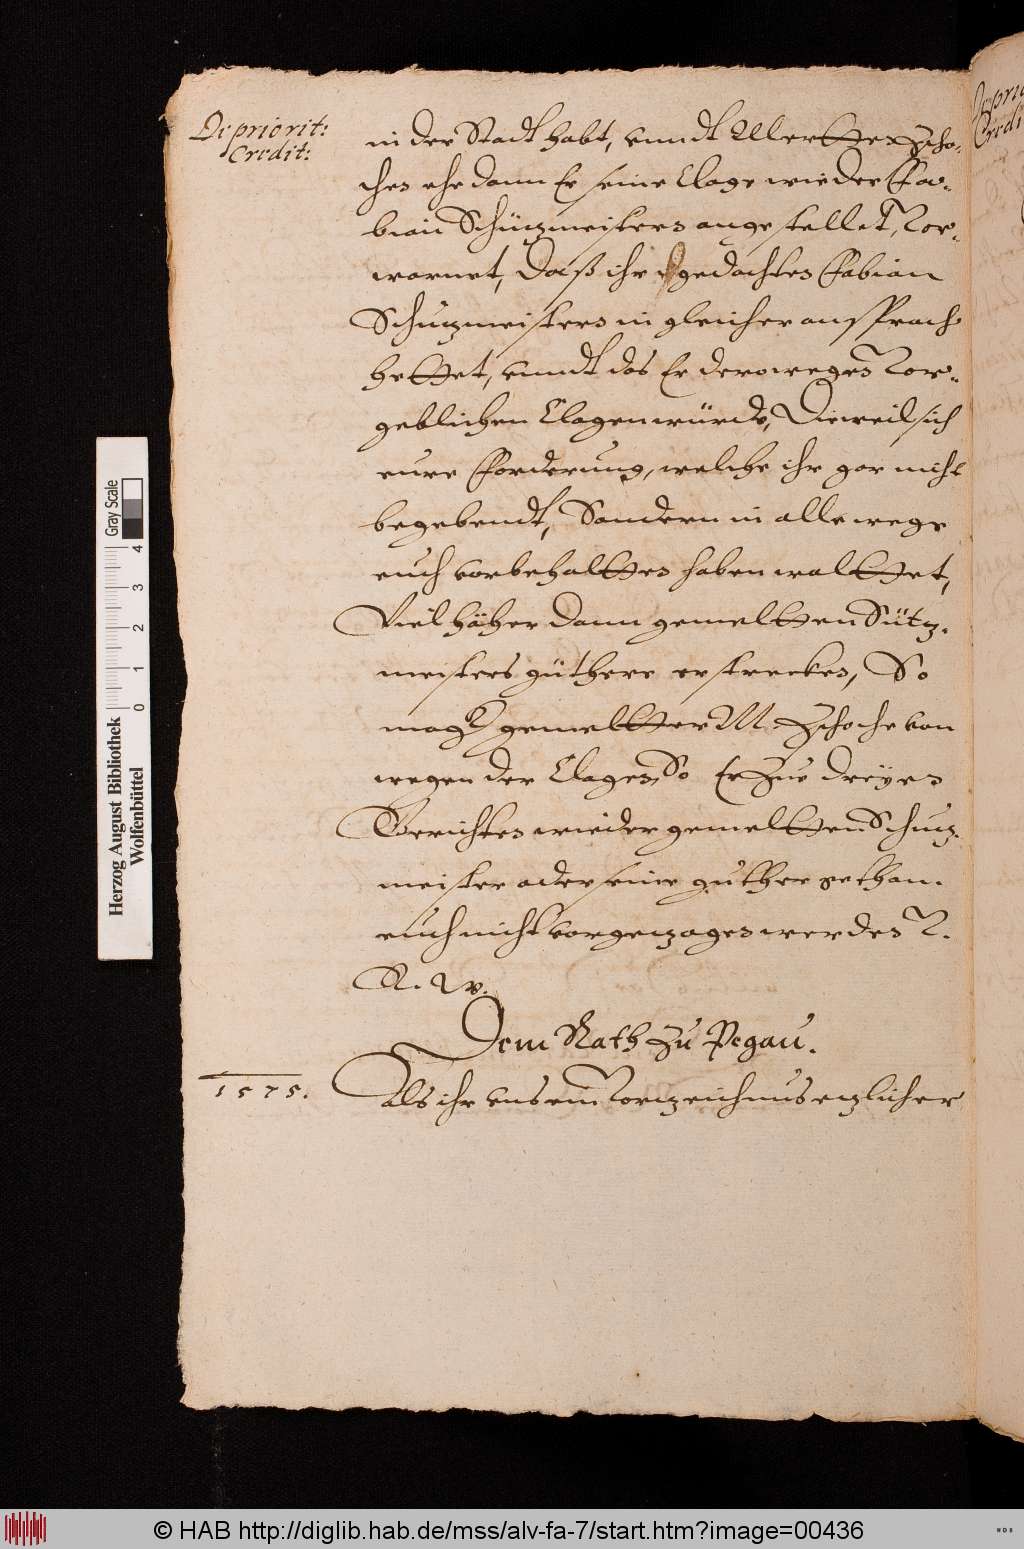 De priorit:
Credit:
in der Stadt habt, vnndt Mertten Zscho-
chen ehe dann Er seine Clage wieder Fa-
bian Schützmeistern angestellet, Vor-
warnet, Daß ihr gedachten Fabian
Schutzmeistern in gleicher ansprach
hettet, vnndt das Er deroweges Vor-
geblichen Clagen würde, Dieweil sich
eure Forderung, welche ihr gar nicht
begebendt, Sondern in alle wege
euch vorbehalten haben woltet,
Viel höher dann gemelten Sütz-
meisters güthere erstrecken, So
magk gemelter M. Zschoche von
wegen der Clagen, So Er zue dreyen
Gerichten wieder gemelten Schutz-
meister oder seine guther gethan.
euch nicht vorgezogen werden V.
R. W.
Dem Rath zu Pegau.
1575.
Als ihr vns ein Vorzeichnus etzlicher
Herzog August Bibliothek
Wolfenbüttel
0 1 2 3 4
Gray Scale
© HAB http://diglib.hab.de/mss/alv-fa-7/start.htm?image=00436